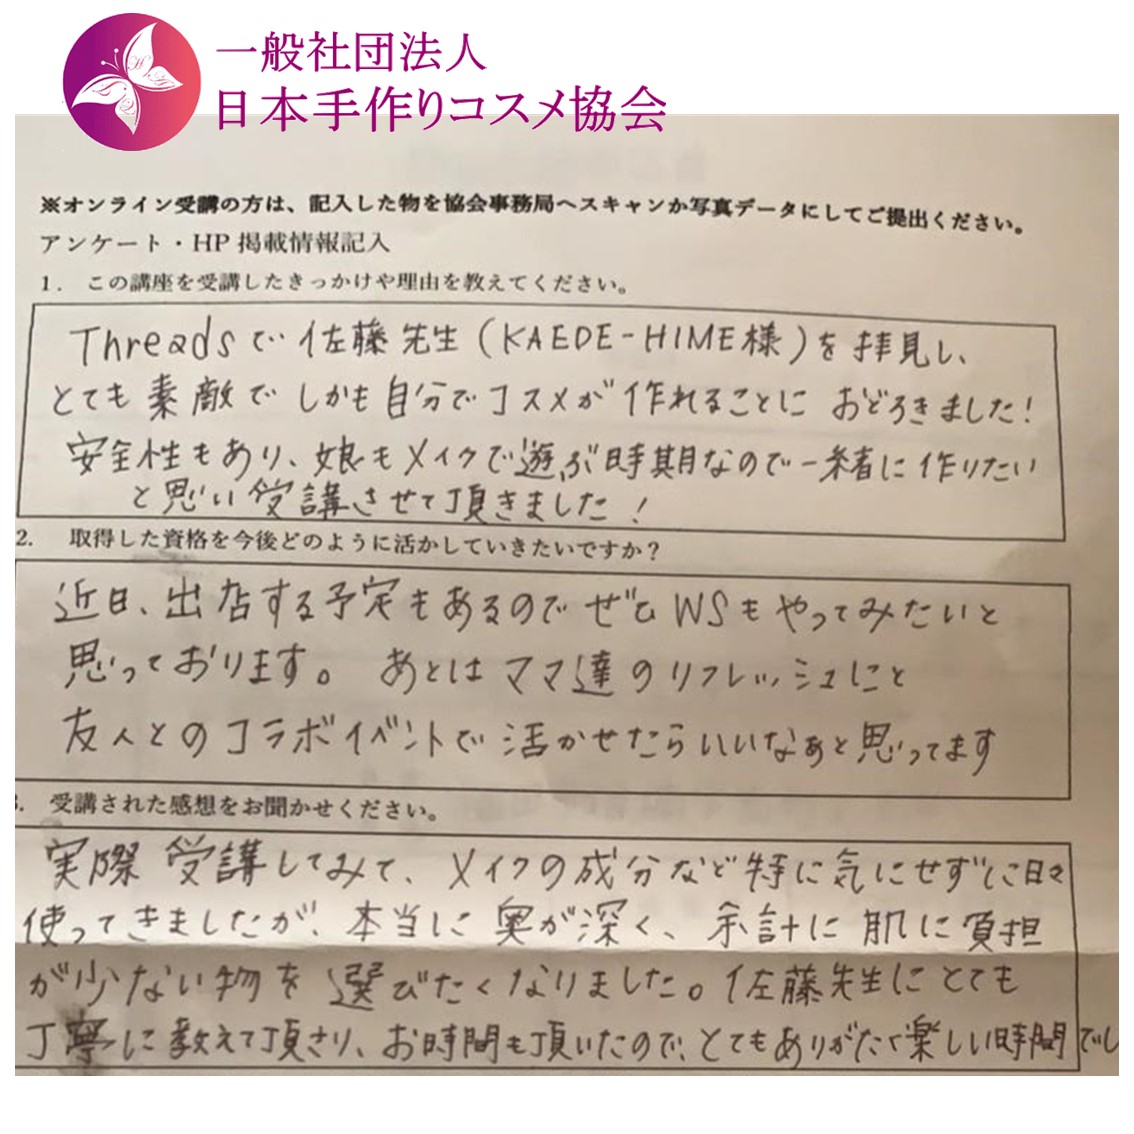 一般社団法人
日本手作りコスメ協会
※オンライン受講の方は、記入した物を協会事務局へスキャンか写真データにしてご提出ください。
アンケート・HP 掲載情報記入
1. この講座を受講したきっかけや理由を教えてください。
Threadsで佐藤先生(KAEDE-HIME様)を拝見し、
とても素敵でしかも自分でコスメが作れることにおどろきました!
安全性もあり、娘もメイクで遊ぶ時期なので一緒に作りたい
と思い受講させて頂きました!
2. 取得した資格を今後どのように活かしていきたいですか?
近日、出店する予定もあるのでぜひWSもやってみたいと
思っております。あとはママ達のリフレッシュにと
友人とのコラボイベントで活かせたらいいなぁと思ってます
3. 受講された感想をお聞かせください。
実際受講してみて、メイクの成分など特に気にせずに日々
使ってきましたが、本当に奥が深く、余計に肌に負担
が少ない物を選びたくなりました。佐藤先生にとても
丁寧に教えて頂さり、お時間も頂いたので、とてもありがたく楽しい時間でし